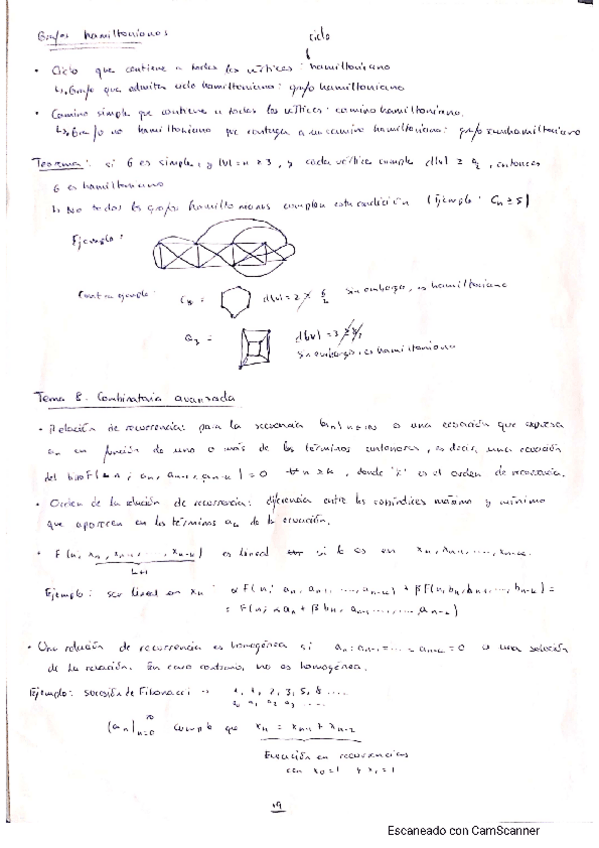 Grafos hamiltonianos
ciclo
• Ciclo que contiene a todos los vértices: hamiltoniano
↳ Grafo que admite ciclo hamiltoniano: grafo hamiltoniano
• Camino simple que contiene a todos los vértices: camino hamiltoniano.
↳ Grafo no hamiltoniano que contenga a un camino hamiltoniano: grafo semihamiltoniano
Teorema: si G es simple, y |V| = n ≥ 3, y cada vértice cumple d(v) ≥ n/2, entonces
G es hamiltoniano
↳ No todos los grafos hamiltonianos cumplen esta condición (Ejemplo: Cn ≥ 5)
Ejemplo:
Contraejemplo: C6 = d(v) = 2 ≱ 6/2 sin embargo, es hamiltoniano
Q3 = d(v) = 3 ≱ 8/2
sin embargo, es hamiltoniano
Tema 8. Combinatoria avanzada
• Relación de recurrencia: para la secuencia es una ecuación que expresa
an en función de uno o más de los términos anteriores, es decir, una ecuación
del tipo F(n; an, an-1, ..., an-k) = 0 ∀n ≥ k, donde 'k' es el orden de recurrencia.
• Orden de la relación de recurrencia: diferencia entre los subíndices máximo y mínimo
que aparecen en los términos ak de la ecuación.
• F(n, xn, xn-1, ..., xn-k) es lineal si lo es en xn, xn-1, ..., xn-k.
k+1
Ejemplo: sea lineal en xn: αF(n; an, an-1, ..., an-k) + βF(n, bn, bn-1, ..., bn-k) =
= F(n; αan + βbn, an-1, ..., an-k)
• Una relación de recurrencia es homogénea si an = an-1 = ... = an-k = 0 es una solución
de la relación. En caso contrario, no es homogénea.
Ejemplo: sucesión de Fibonacci → 1, 1, 2, 3, 5, 8 ....
a0 a1 a2 a3 ....
(an)∞n=0 cumple que xn = xn-1 + xn-2
Ecuación en recurrencias
con x0=1 y x1=1
19
Escaneado con CamScanner